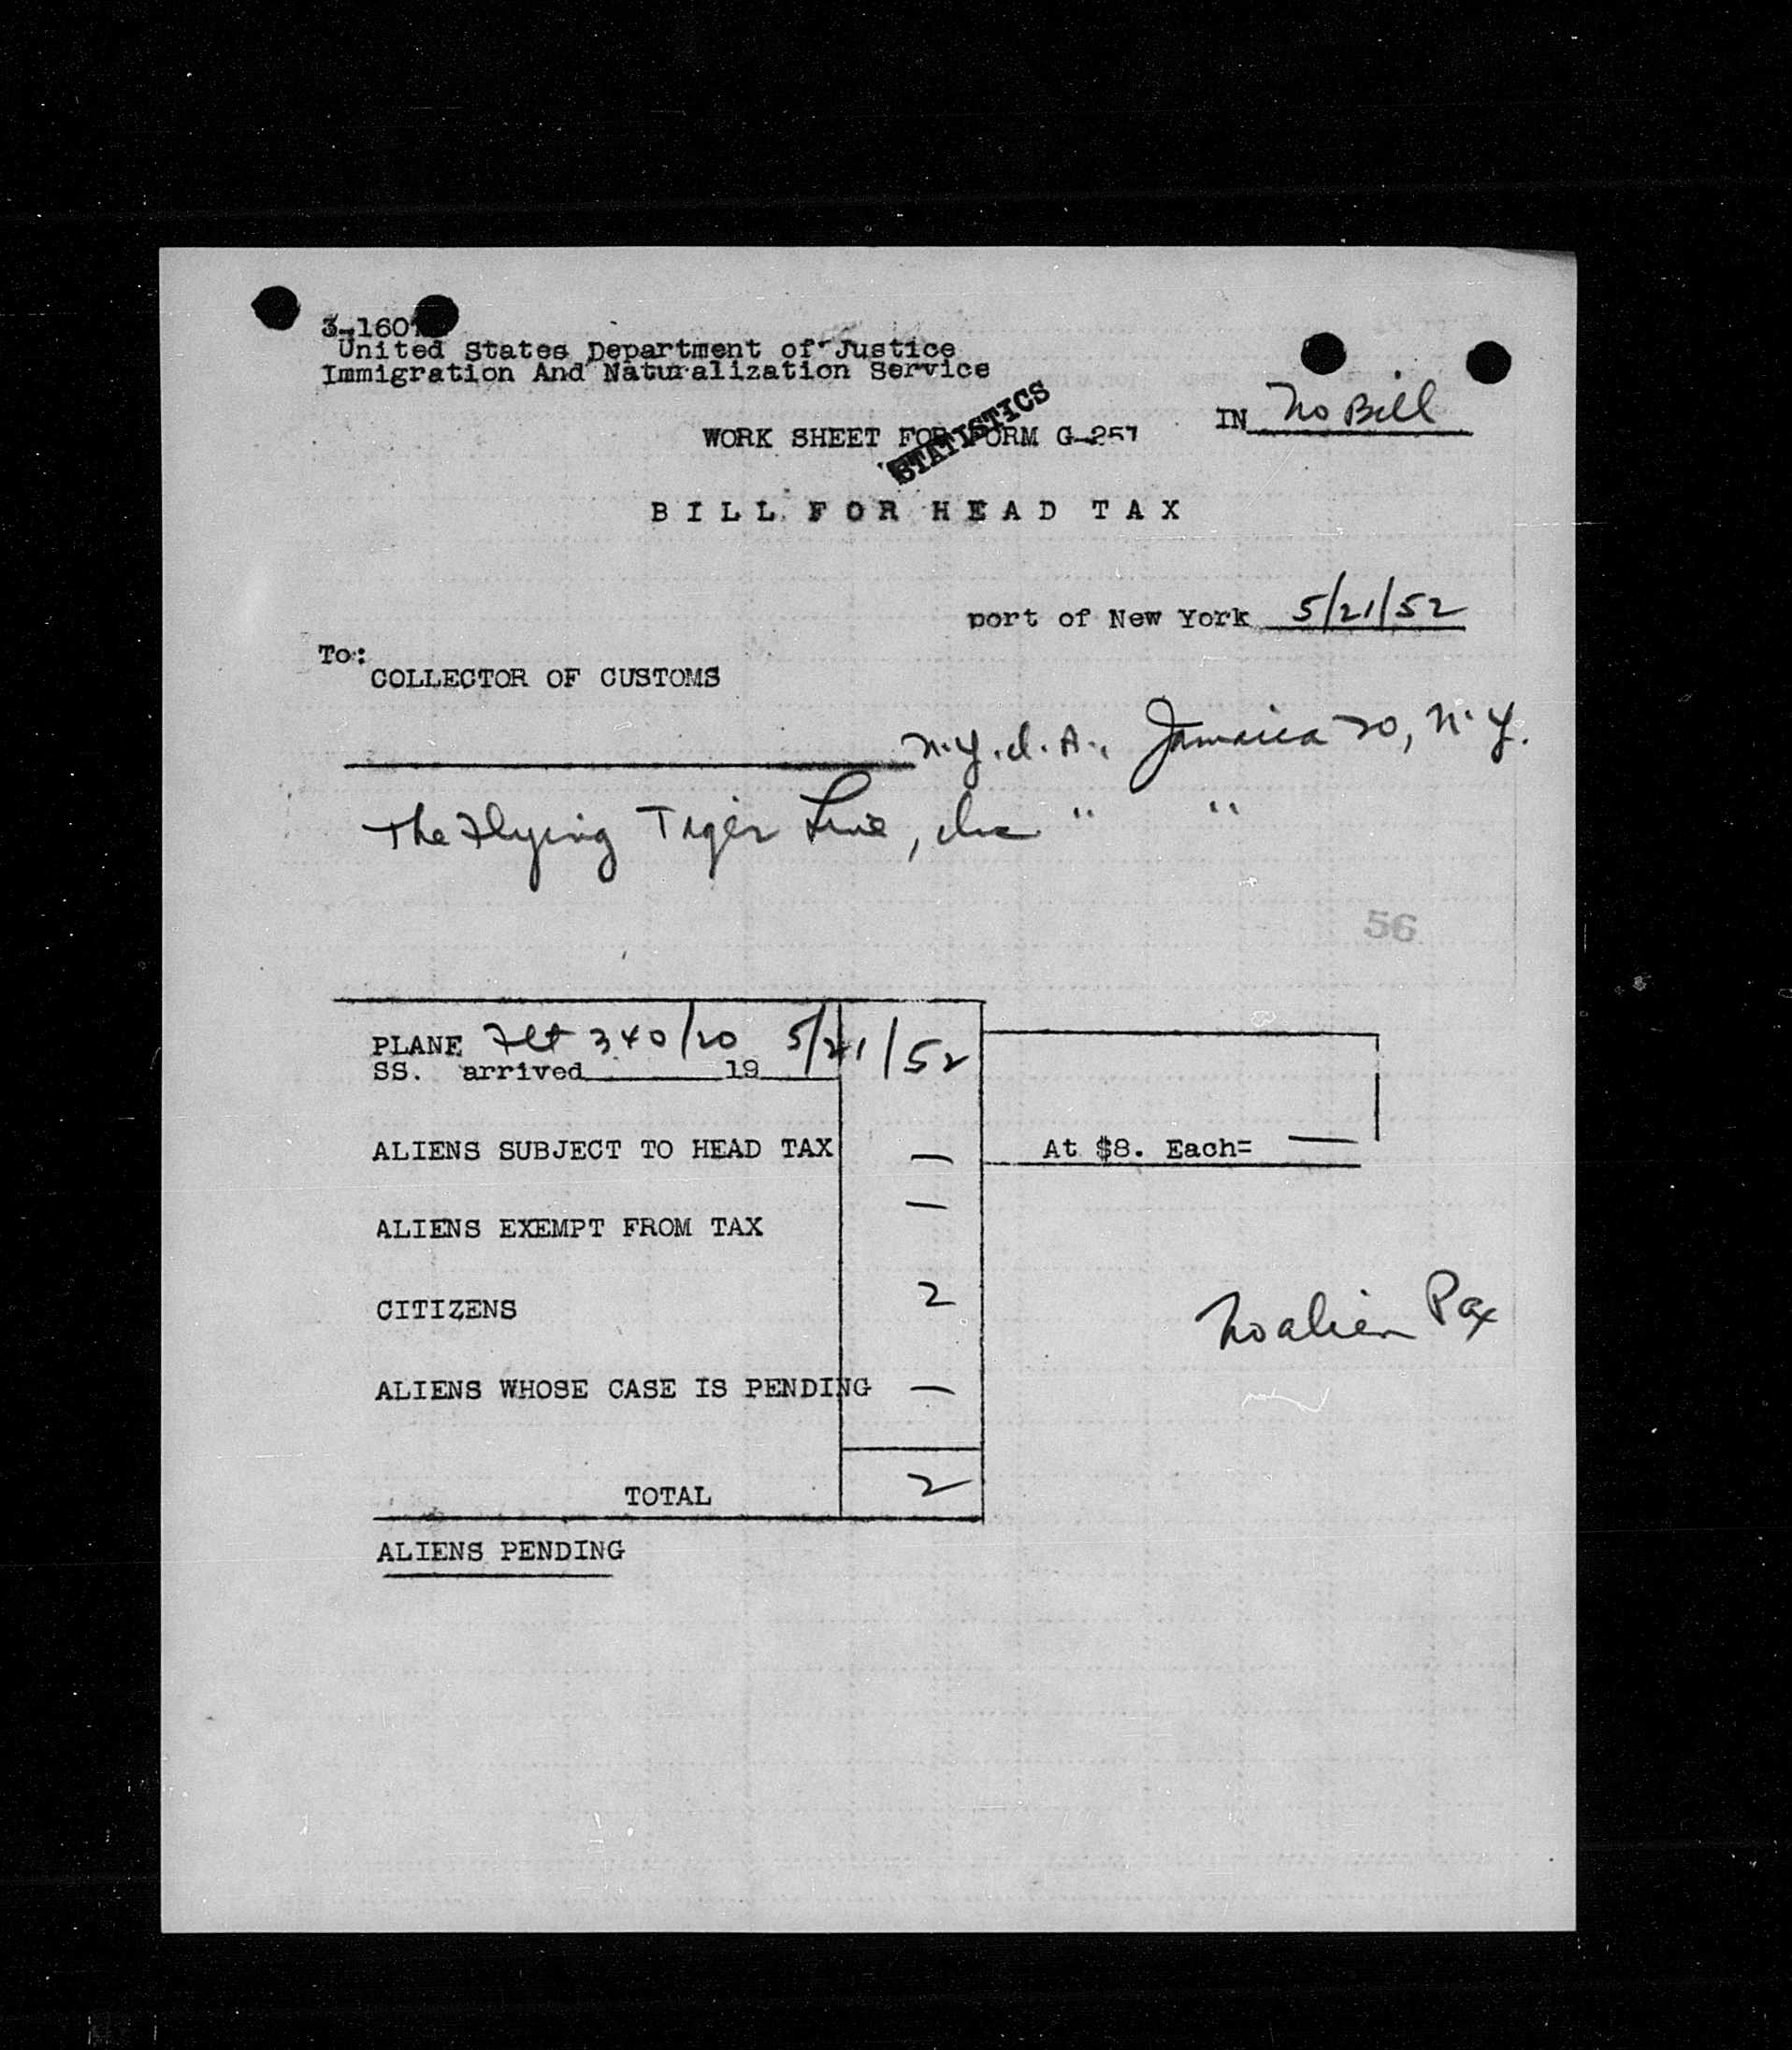 3-160
United States Department of Justice
Immigration And Naturalization Service
IN No Bill
WORK SHEET FOR FORM G-257
STATISTICS
BILL FOR HEAD TAX
port of New York 5/21/52
To:
COLLECTOR OF CUSTOMS
N.Y.I.A., Jamaica 20, N.Y.
The Flying Tiger Line, Inc " "
56
PLANE Flt 340/20 5/21/52
SS. arrived 19
ALIENS SUBJECT TO HEAD TAX — At $8. Each= —
ALIENS EXEMPT FROM TAX —
CITIZENS 2
No alien Pax
ALIENS WHOSE CASE IS PENDING —
TOTAL 2
ALIENS PENDING